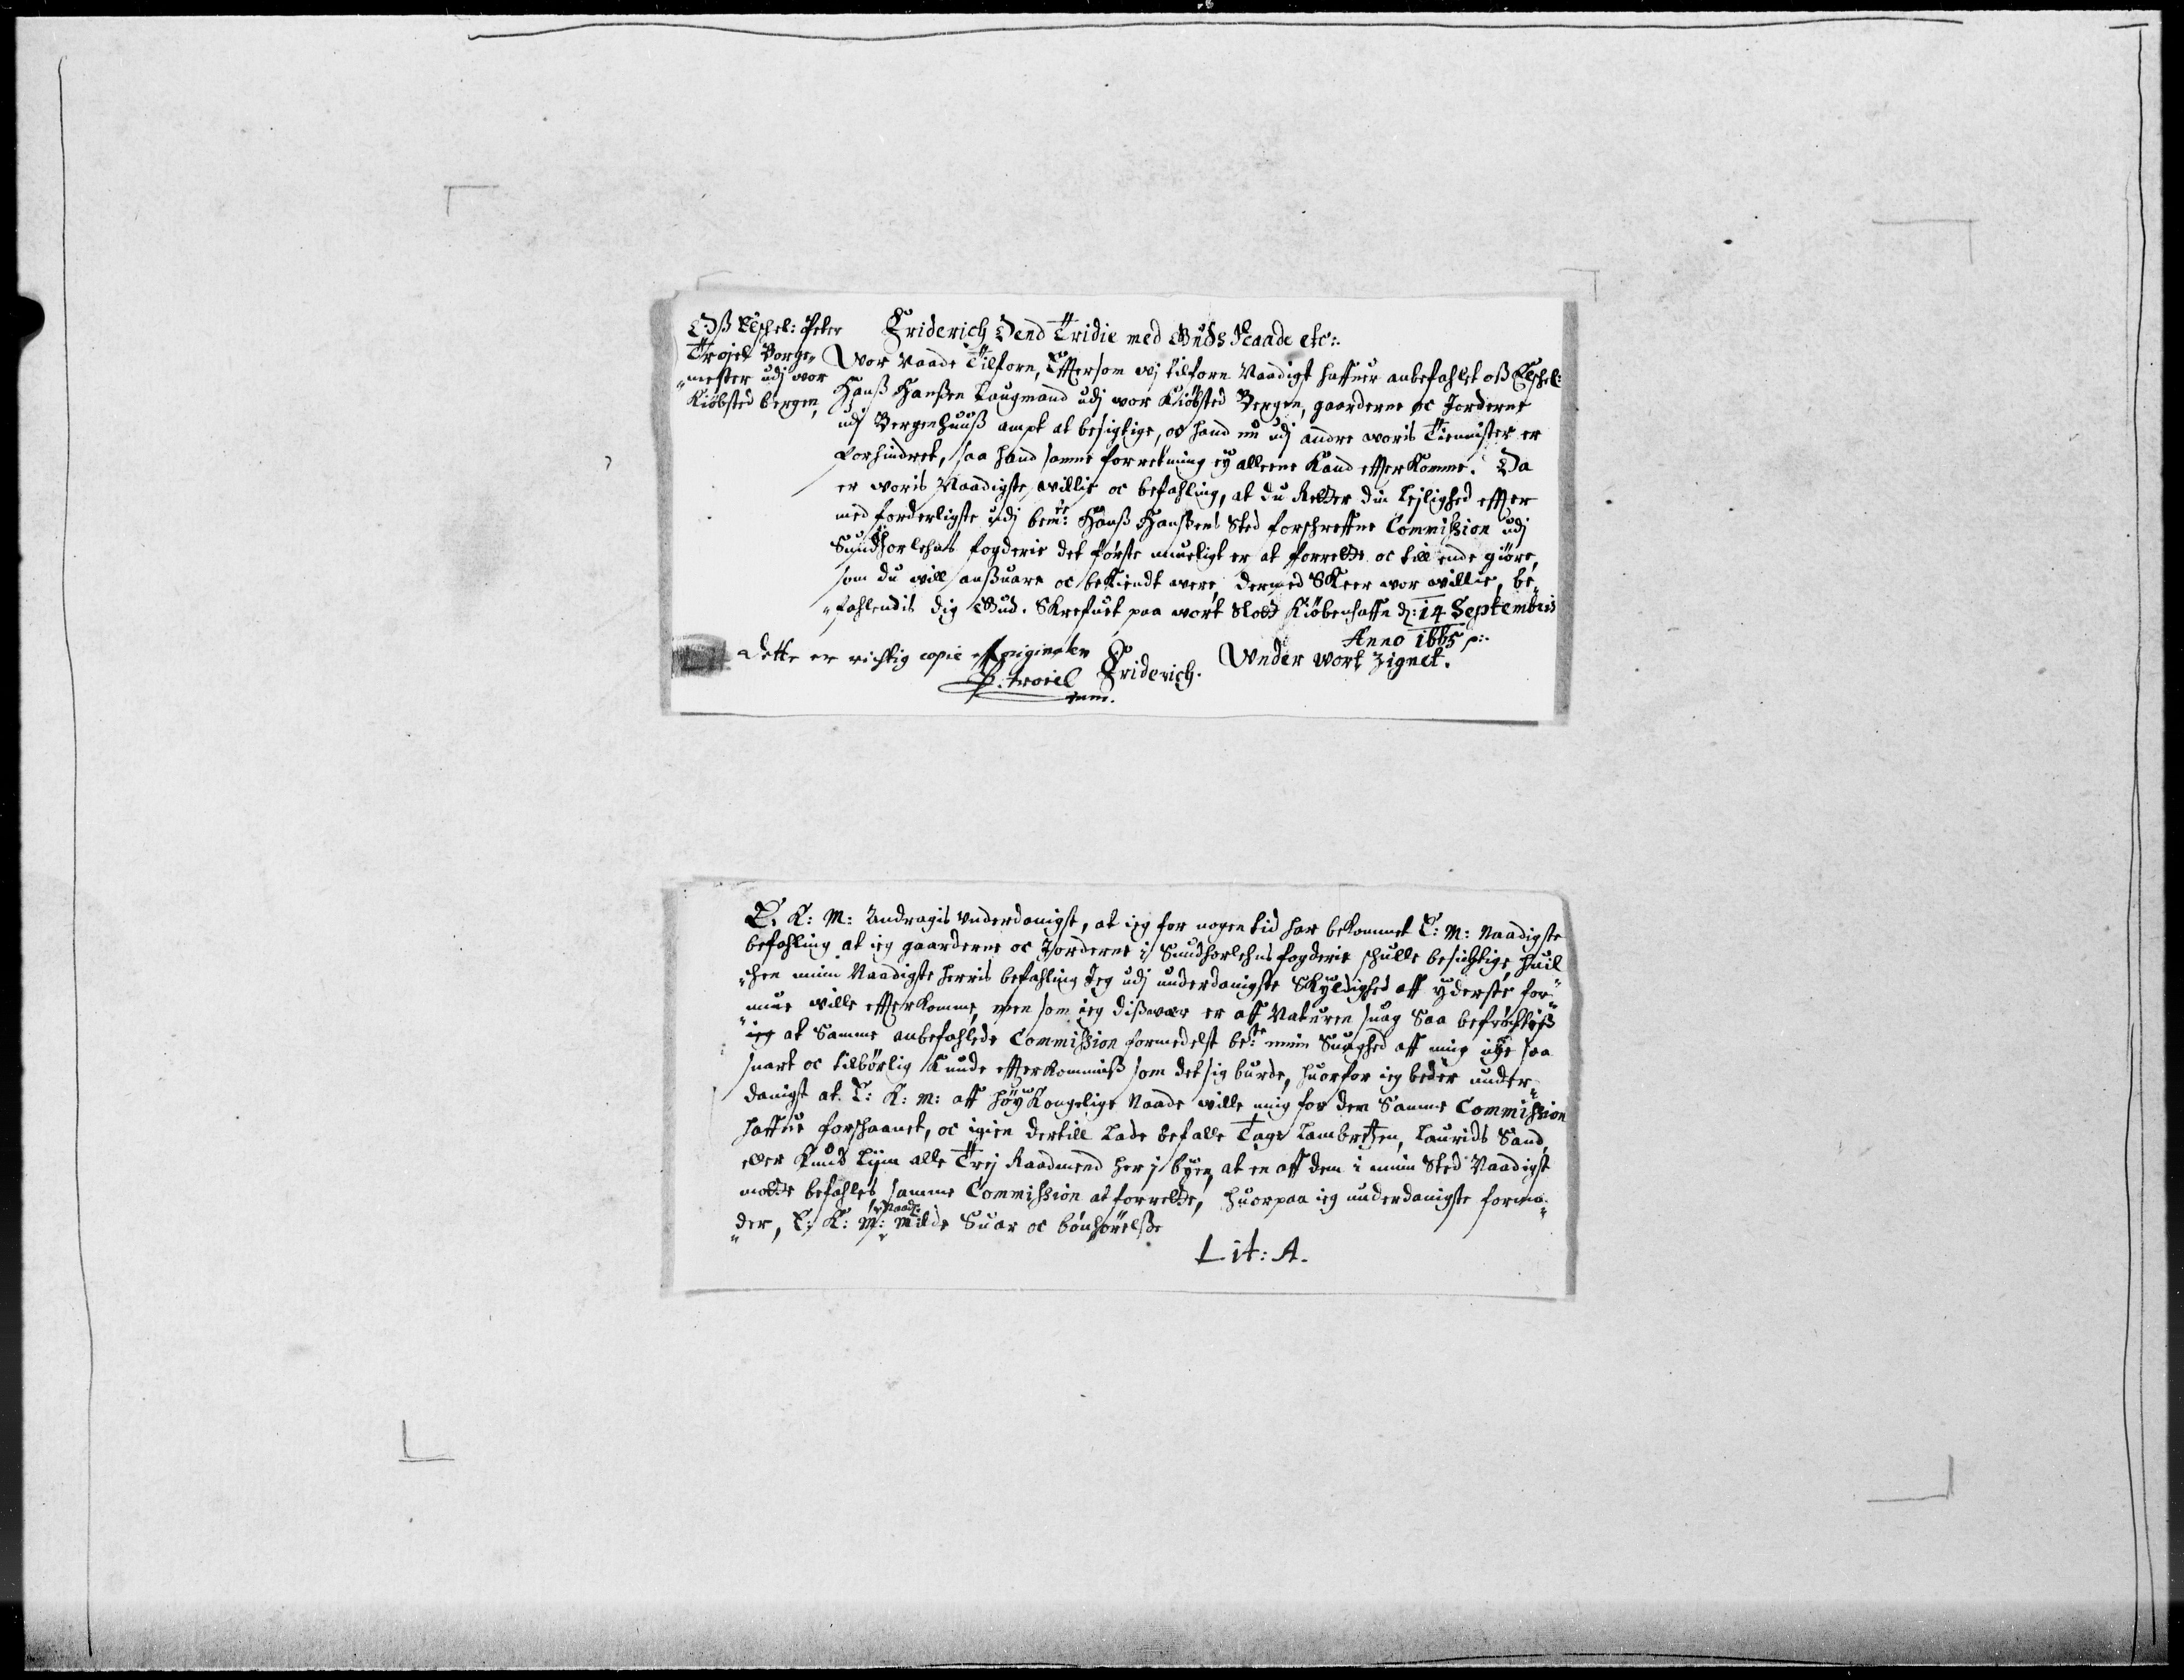 Oß Elschel: Peter
Trojel Borge„
„mester udj vor
Kiöbsted bergen,
Friderich Dend Tridie med Guds Naade etc:.
Wor Naade Tilforn, Effterson vj tilforn Naadigt haffuer anbefahlet oß Elschel:
Hanß Hanßen Laugmand udj vor Kiöbsted Bergen, gaarderne oc Jorderne
udj Bergenhuuß ampt at besigtige, oc hand nu udj andre voris Tienister er
forhindret, saa hand samme forretning ej alleene kand effterkomme. Da
er voris Naadigste villie oc befahling, at du Retter din Lejlighed effter
med forderligste udj bem:te Hanß Hanßens Sted forschreffne Commission udj
Sundhorlehns fogderie det förste mueligt er at forrette oc till ende giöre,
som du vill anßuare oc bekiendt vere, dermed Skeer vor villie, be„
„fahlendis dig Gud. Skrefuet paa vort Slott Kiöbenhaffn d: 14 Septembris
Anno 1665 p:.
Under vort Zignet.
Dette er richtig copie aff originalen
Friderich.
P. Trojel
E. K: M: Andragis Underdanigst, at ieg for nogen tid har bekommet E: M: Naadigste
befahling at ieg gaarderne oc Jorderne i Sundhorlehns fogderie schulle besichtige, huil„
„chen min Naadigste herris befahling Jeg udj underdanigste Skyldighed aff yderste for„
„mue ville effterkomme, men som ieg dißwær er aff Naturen suag Saa befröchtiß
ieg at Samme anbefahlede Commission formedelst be:te min Suaghed aff mig icke saa
snart oc tilbörlig kunde effterkommiß som det sig burde, huorfor ieg beder under„
danigst at E: K: M: aff höy Kongelige Naade ville mig for den Samme Commission
haffue forschaanet, oc igien dertill Lade befalle Tage Lambretzen, Laurids Sand,
eller Knud Lÿm alle Trej Raadmend her j byen, at en aff dem i min Sted Naadigst
motte befahles samme Commission at forrette, huorpaa ieg underdanigste formo„
„der, E: K: M: Milde Suar oc bönhörelße
Lit: A.